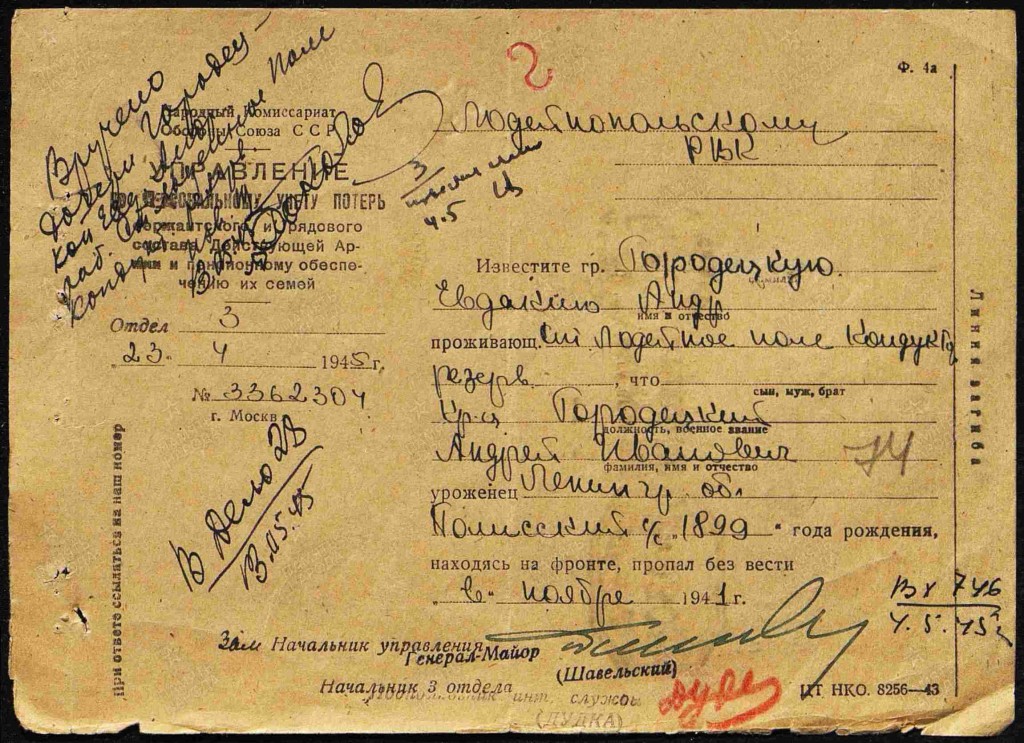 Ф. 4а
2
Вручено
дочери Городец-
кой Евд. Андр.
раб. ст. Лодейное Поле
конд. рез.
Народный Комиссариат
Обороны Союза ССР
УПРАВЛЕНИЕ
ПО ПЕРСОНАЛЬНОМУ УЧЕТУ ПОТЕРЬ
сержантского и рядового
состава Действующей Ар-
мии и пенсионному обеспе-
чению их семей
Отдел 3
"23" 4 1945 г.
№ 3362304
г. Москва
В дело 28
В. 15.45
При ответе ссылаться на наш номер
Лодейнопольскому
РВК
3
4.5
Известите гр. Городецкую
фамилия
Евдакию Андр
имя и отчество
проживающ. ст Лодейное поле Кондукт
резерв , что
сын, муж, брат
Кр-ц Городецкий
должность, военное звание
Андрей Иванович
фамилия, имя и отчество
74
уроженец Ленингр. обл
с/с "1899" года рождения,
находясь на фронте, пропал без вести
"в" ноябре 1941 г.
Вх 746
4.5.45г
Зам Начальник управления
Генерал-Майор
(Шавельский)
Начальник 3 отдела
Подполковник инт. службы
(ДУДКА)
ЦТ НКО. 8256—43
Линия загиба